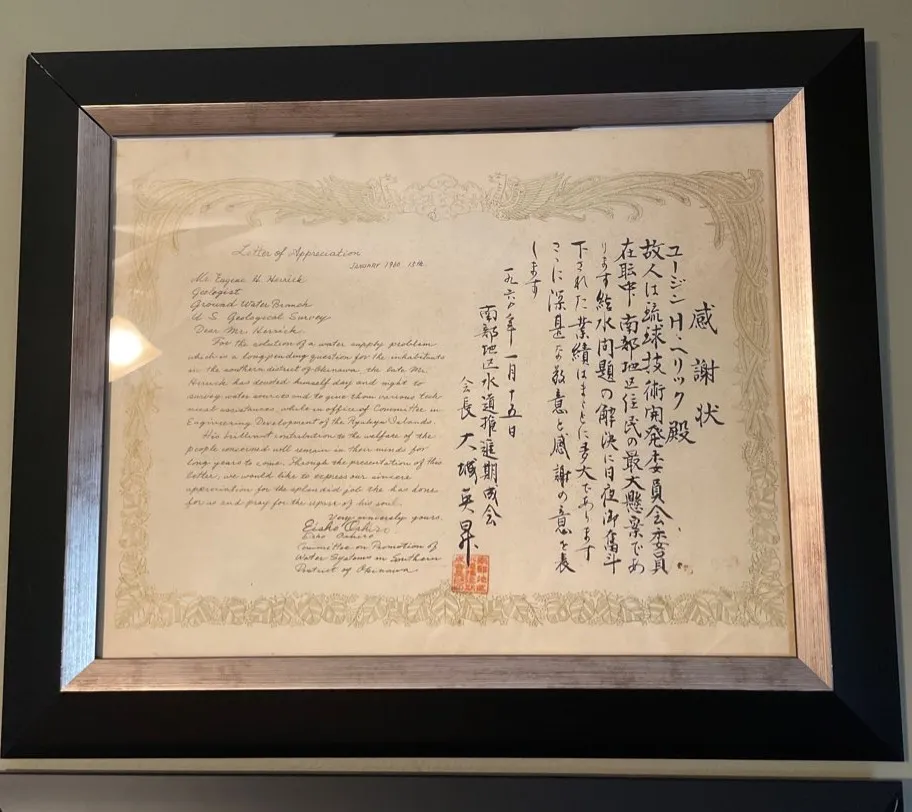 Letter of Appreciation
January 1960 15th.
Mr. Eugene H. Herrick
Geologist
Ground Water Branch
U. S. Geological Survey
Dear Mr. Herrick.
For the solution of a water supply problem
which is a long pending question for the inhabitants
in the southern district of Okinawa, the late Mr.
Herrick has devoted himself day and night to
survey water sources and to give them various tech-
nical assistances, while in office of Committee in
Engineering Development of the Ryukyu Islands.
His brilliant contribution to the welfare of the
people concerned will remain in their minds for
long years to come. Through the presentation of this
letter, we would like to express our sincere
appreciation for the splendid job the has done
for us and pray for the repose of his soul.
Very sincerely yours,
Eisho Oshiro
Eisho Oshiro
Committee on Promotion of
Water Systems in Southern
District of Okinawa
感謝状
ユージンH・ヘリック殿
故人は琉球技術開発委員会委員
在職中南部地区住民の最大懸案であ
ります給水問題の解決に日夜御奮斗
下された業績はまことに多大であります
ここに深甚な敬意と感謝の意を表
します
一九六〇年一月十五日
南部地区水道推進期成会
会長 大城英昇